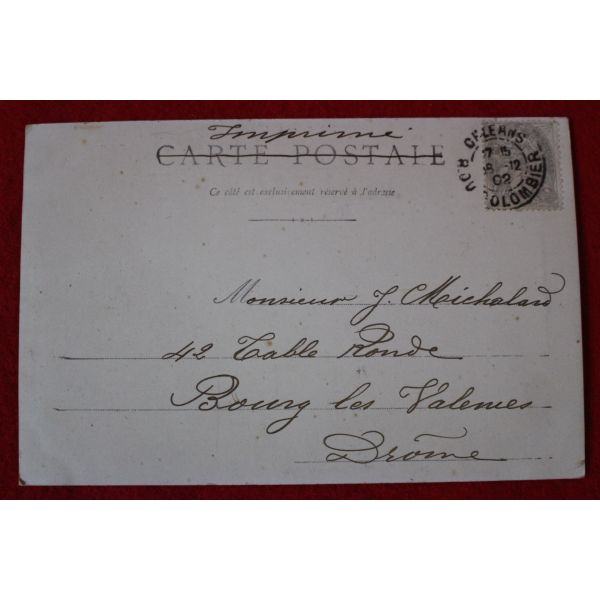 Imprimé
CARTE POSTALE
Ce côté est exclusivement réservé à l'adresse
ORLEANS
7 15
12
02
R. DU COLOMBIER
Monsieur J. Michalard
42 Table Ronde
Bourg les Valences
Drôme